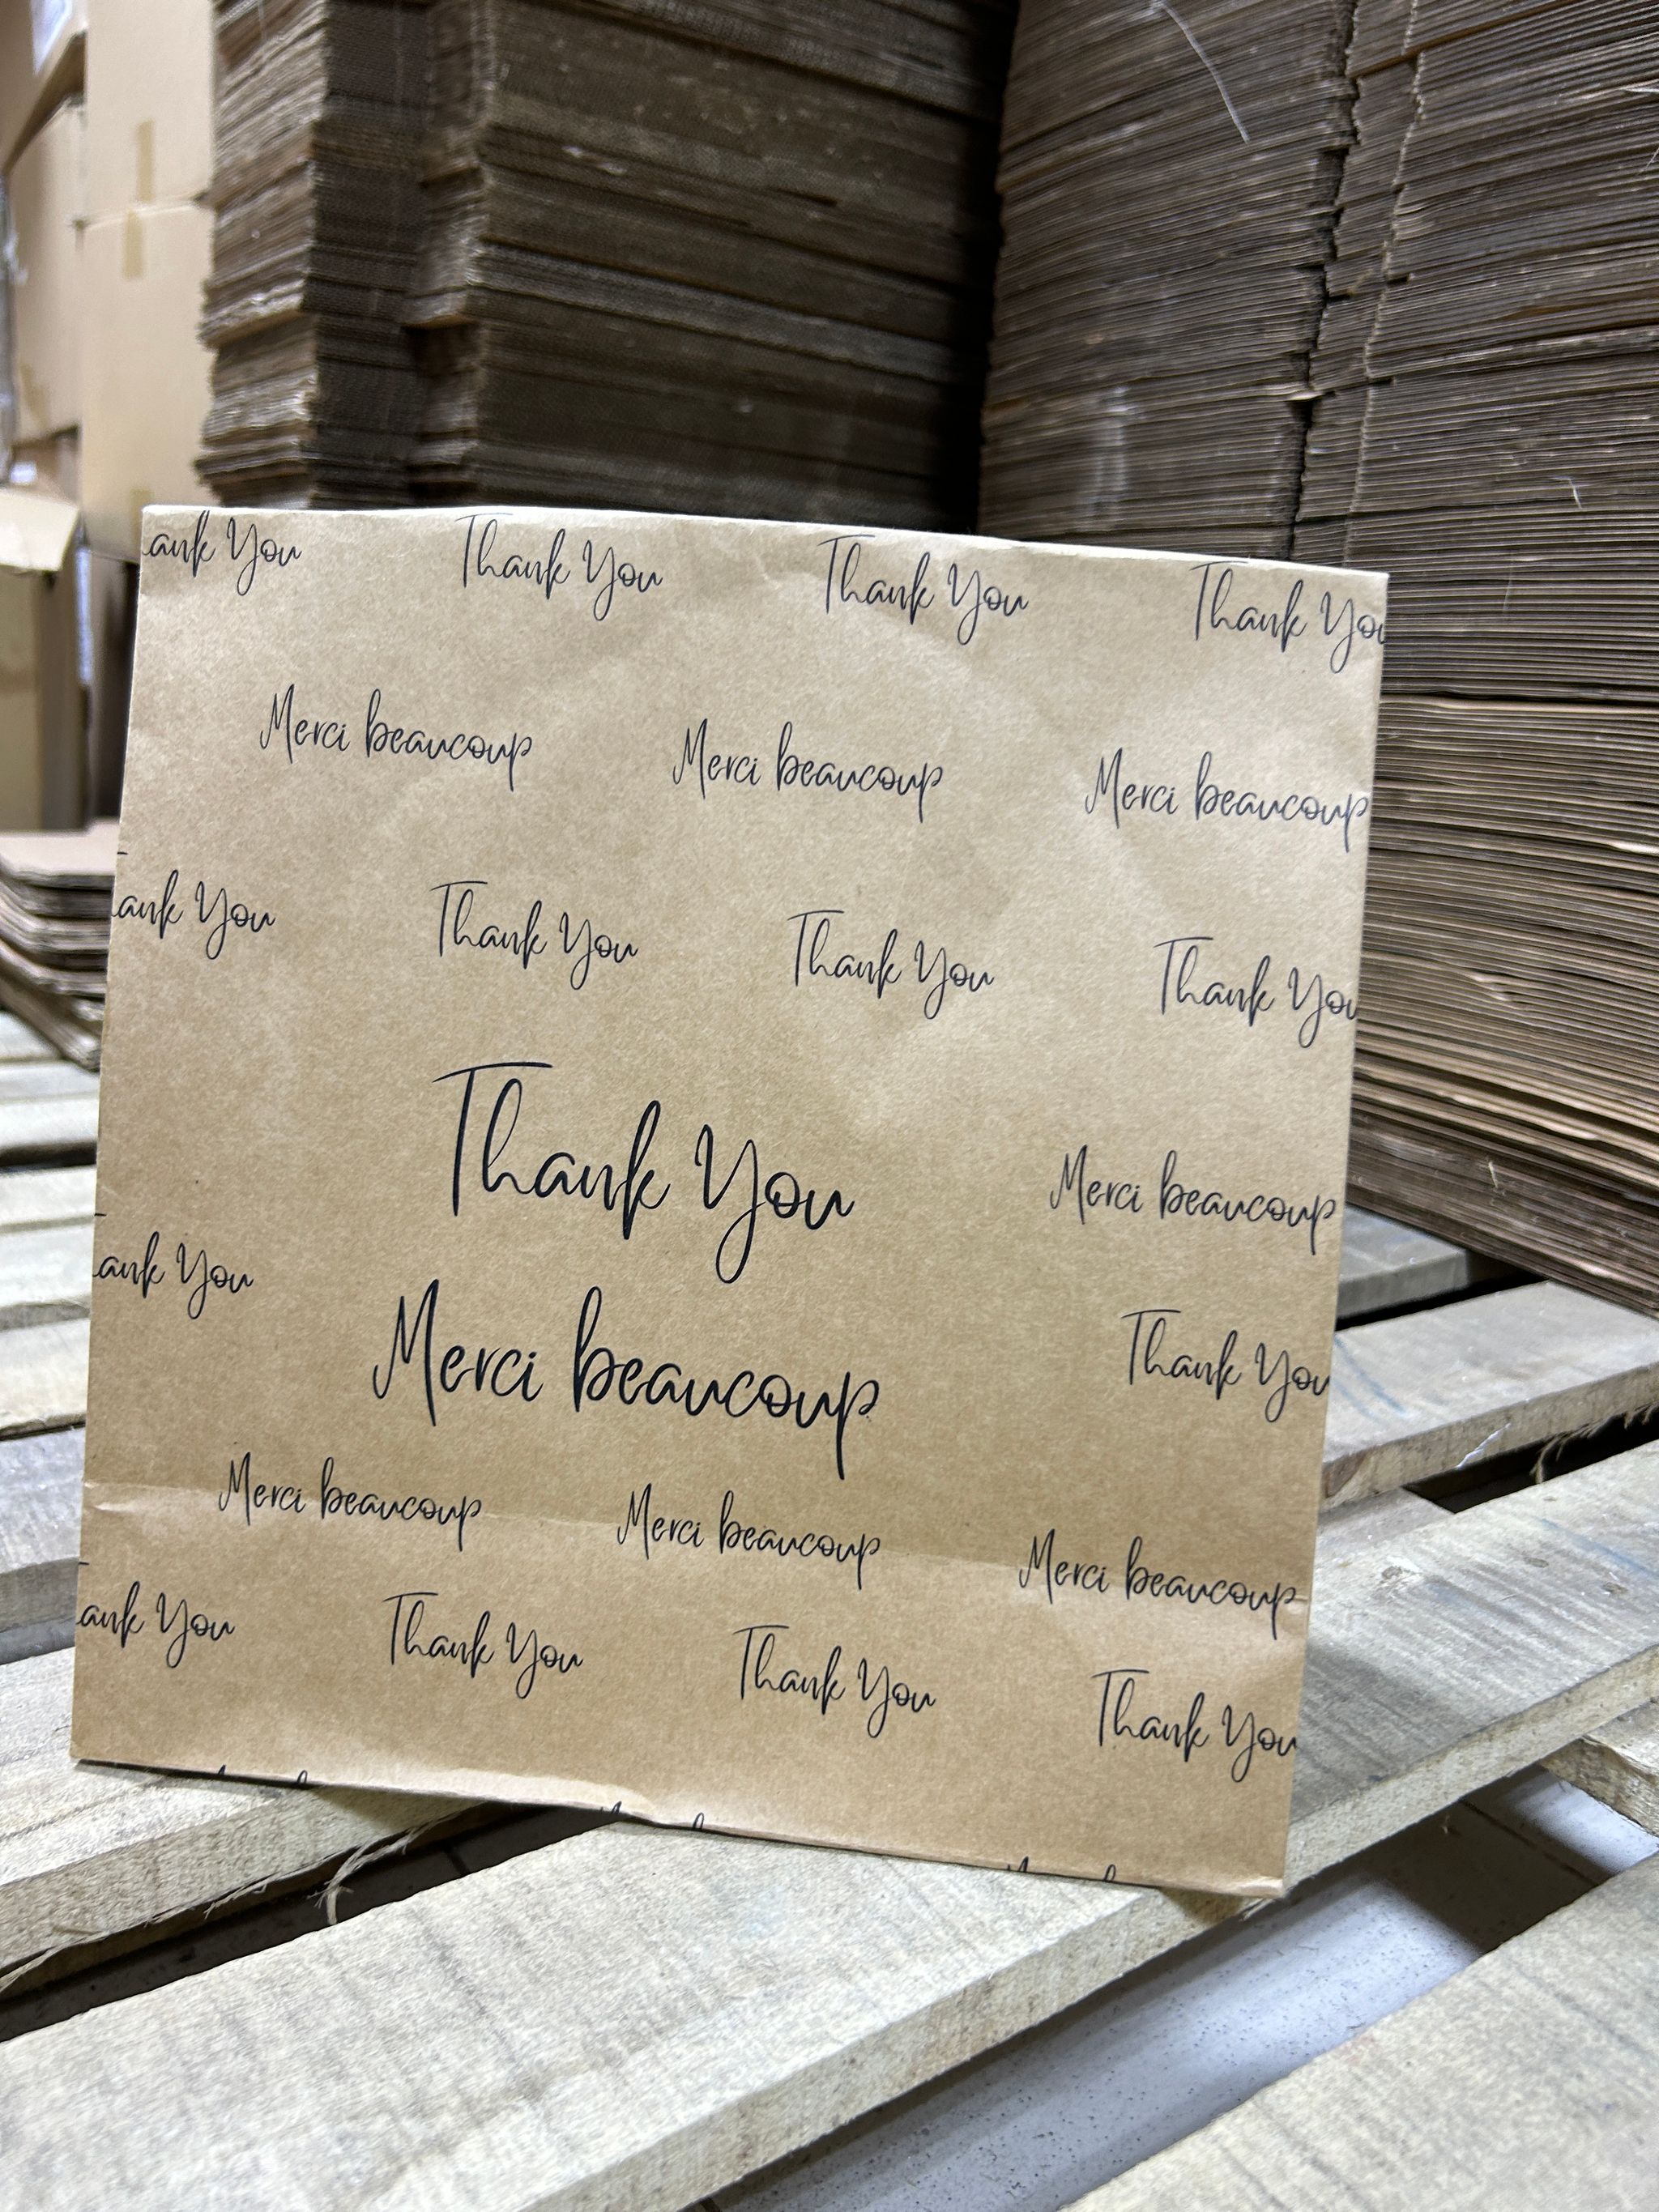 ank You Thank You Thank You Thank You
Merci beaucoup Merci beaucoup Merci beaucoup
ank You Thank You Thank You Thank You
Thank You
Merci beaucoup
ank You
Merci beaucoup
Thank You
Merci beaucoup Merci beaucoup Merci beaucoup
ank You Thank You Thank You Thank You